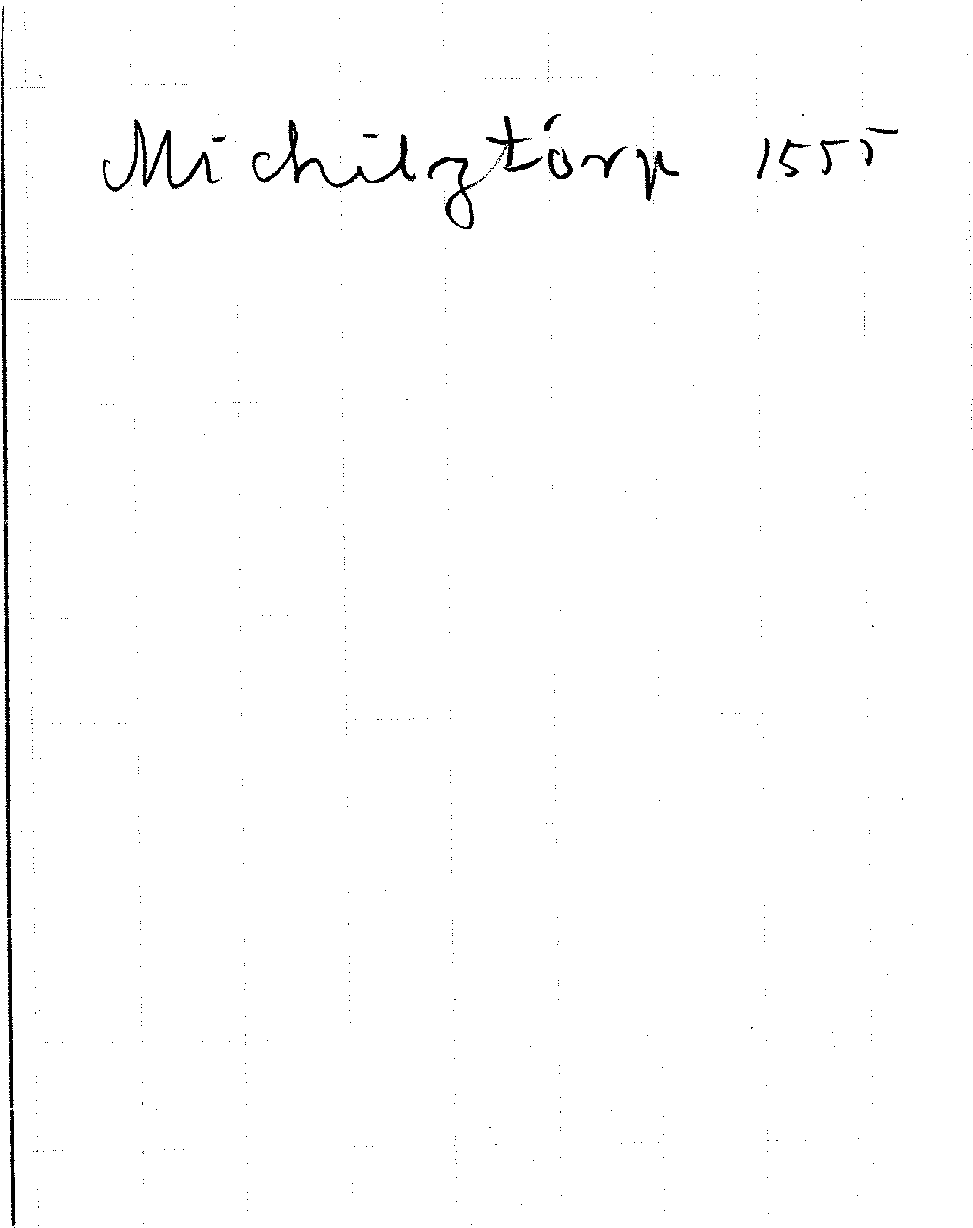 Michilztórp 1555